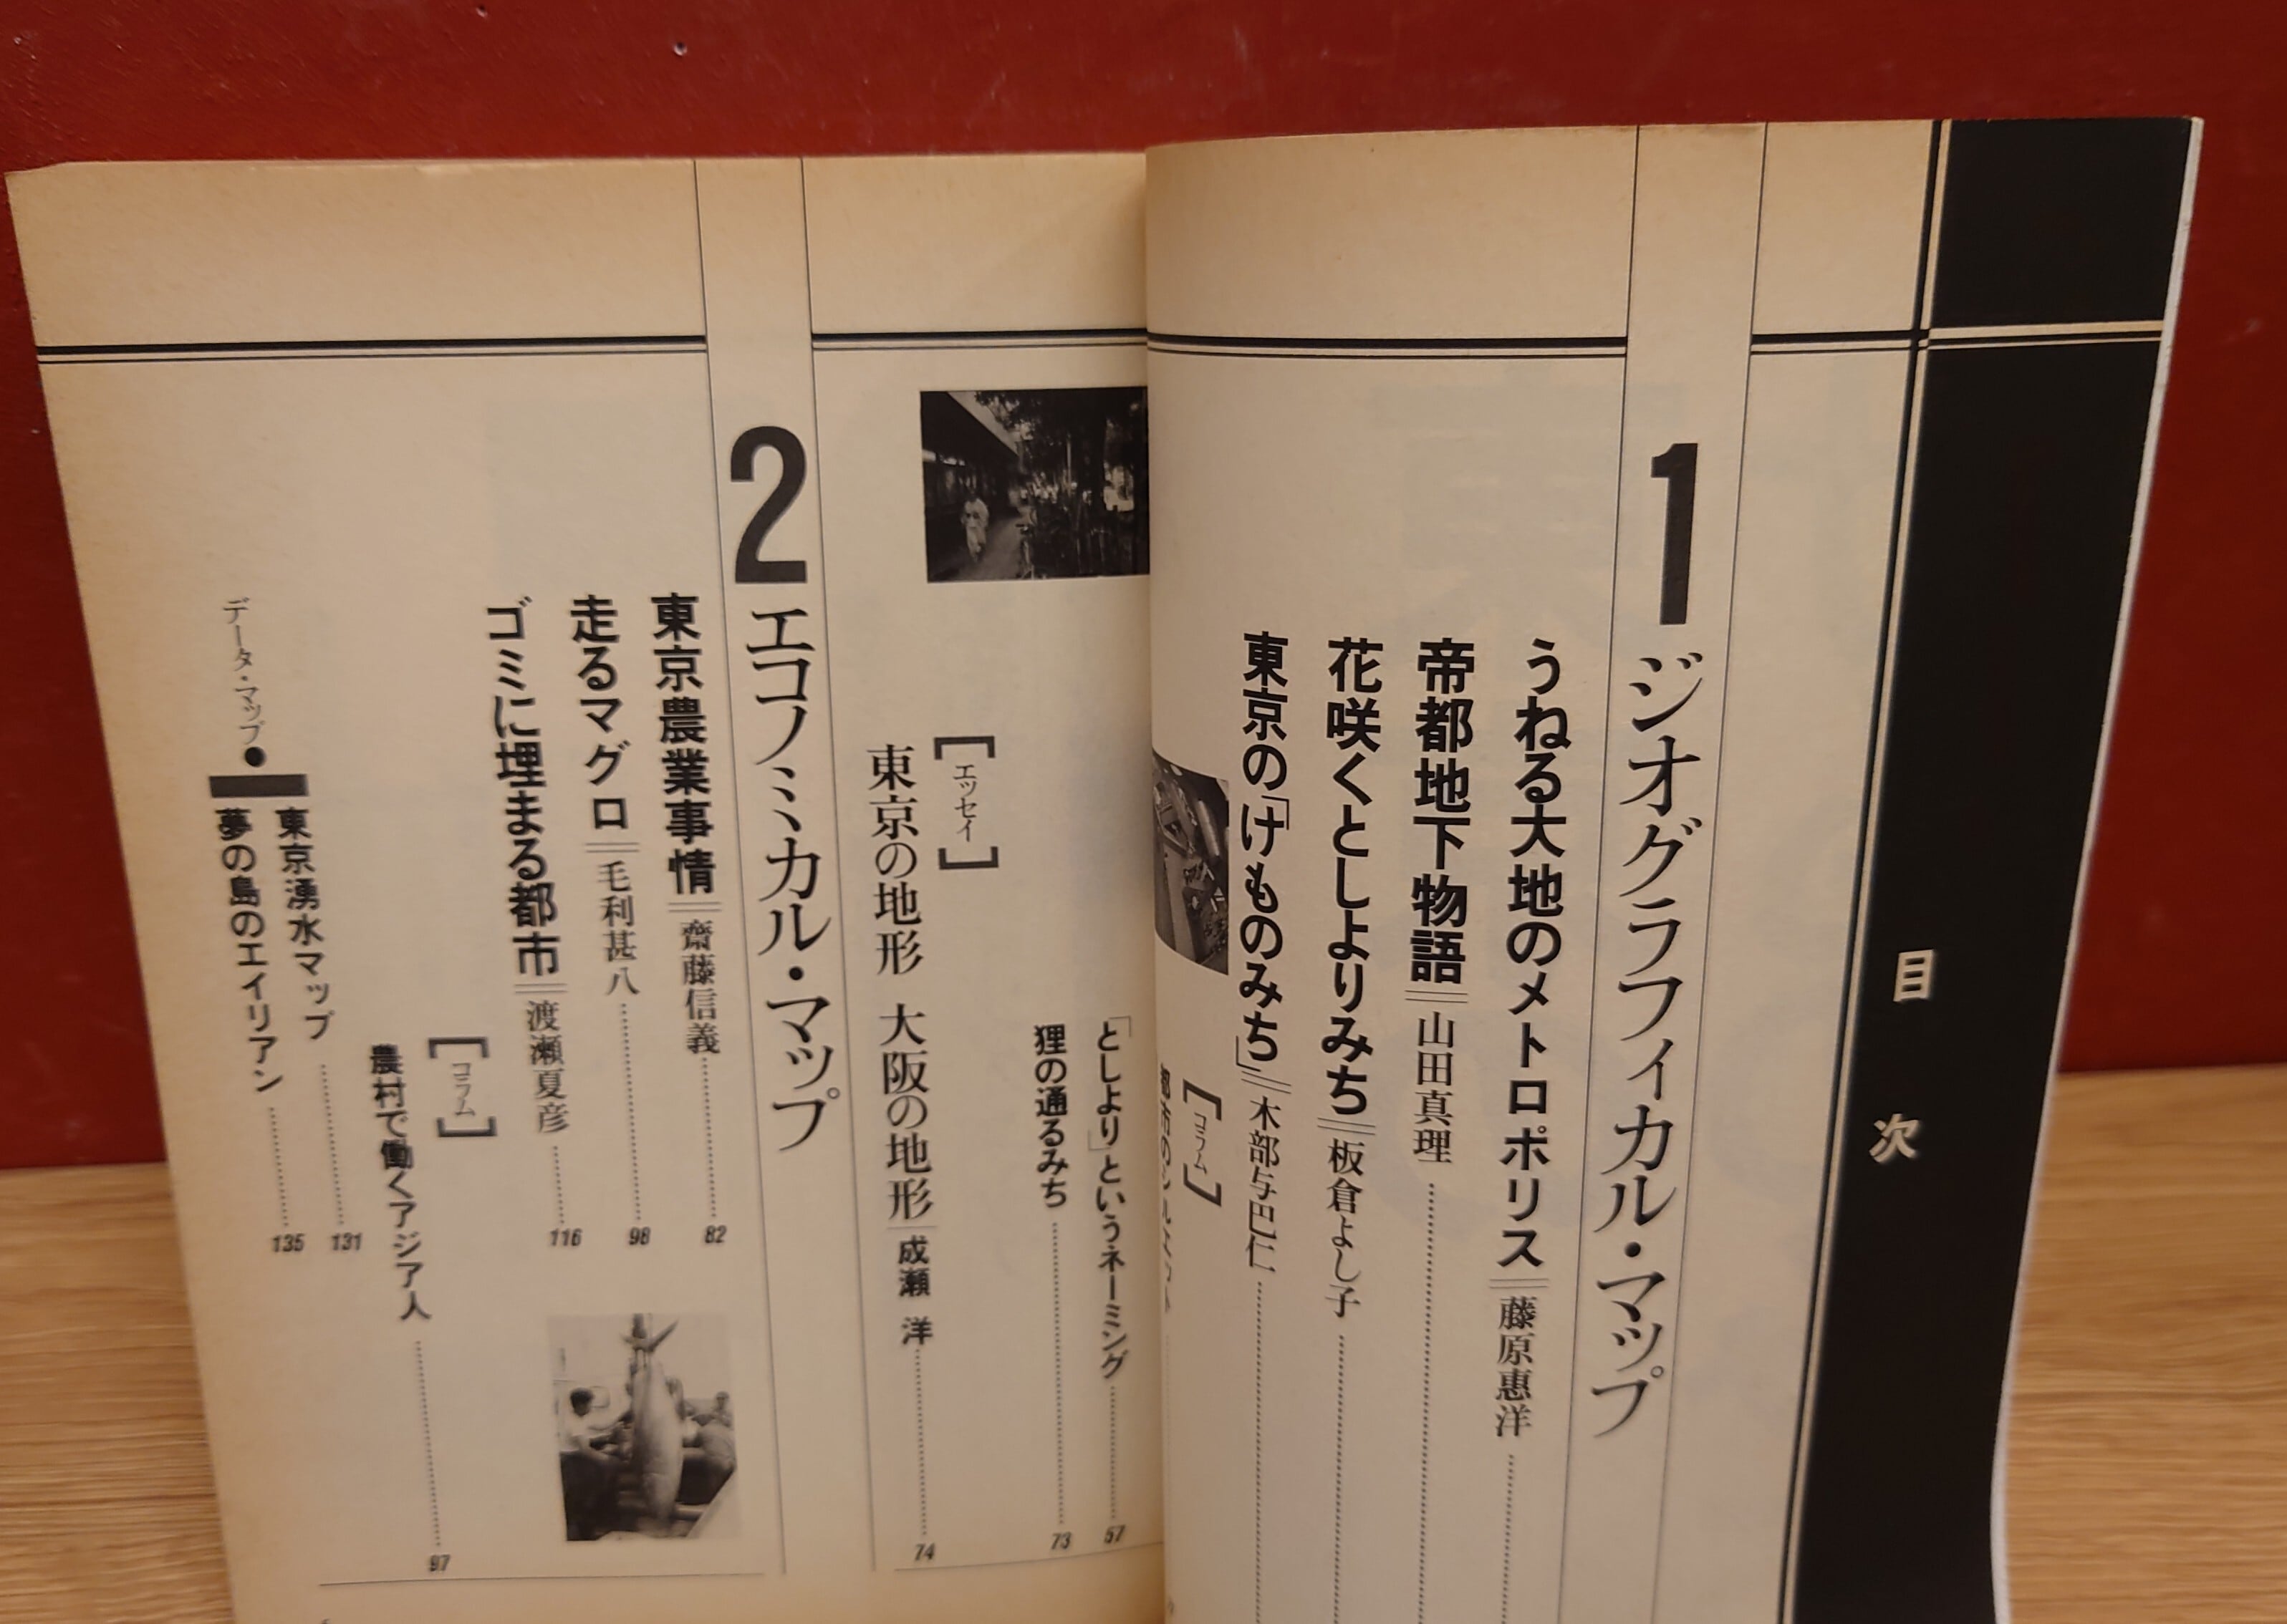 目次
1 ジオグラフィカル・マップ
うねる大地のメトロポリス 藤原惠洋
帝都地下物語 山田真理
花咲くとしよりみち 板倉よし子
東京の「けものみち」 木部与巴仁
[コラム]
「としより」というネーミング 57
狸の通るみち 73
[エッセイ]
東京の地形 大阪の地形 成瀬 洋 74
2 エコノミカル・マップ
東京農業事情 齋藤信義 82
走るマグロ 毛利甚八 98
ゴミに埋まる都市 渡瀬夏彦 116
[コラム]
農村で働くアジア人 97
データ・マップ●
東京湧水マップ 131
夢の島のエイリアン 135